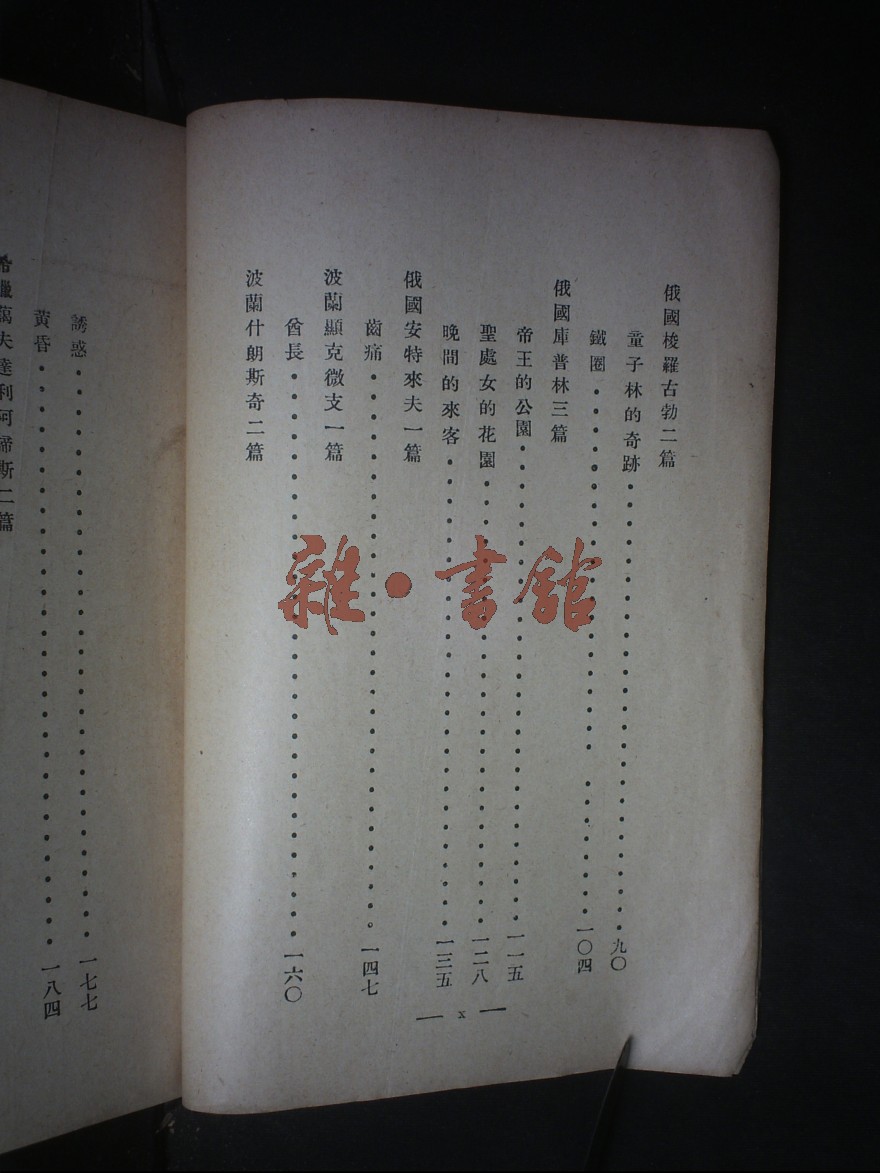 俄國梭羅古勃二篇
童子林的奇跡・・・・・・・・・・・・・・・・・・・・九〇
鐵圈・・・・・・・・・・・・・・・・・・・・一〇四
俄國庫普林三篇
帝王的公園・・・・・・・・・・・・・・・・・・・・一一五
聖處女的花園・・・・・・・・・・・・・・・・・・・・一二八
晚間的來客・・・・・・・・・・・・・・・・・・・・一三五
俄國安特來夫一篇
齒痛・・・・・・・・・・・・・・・・・・・・一四七
波蘭顯克微支一篇
酋長・・・・・・・・・・・・・・・・・・・・一六〇
波蘭什朗斯奇二篇
— x —
誘惑・・・・・・・・・・・・・・・・・・・・一七七
黃昏・・・・・・・・・・・・・・・・・・・・一八四
希臘藹夫達利阿諦斯二篇
雜・書館